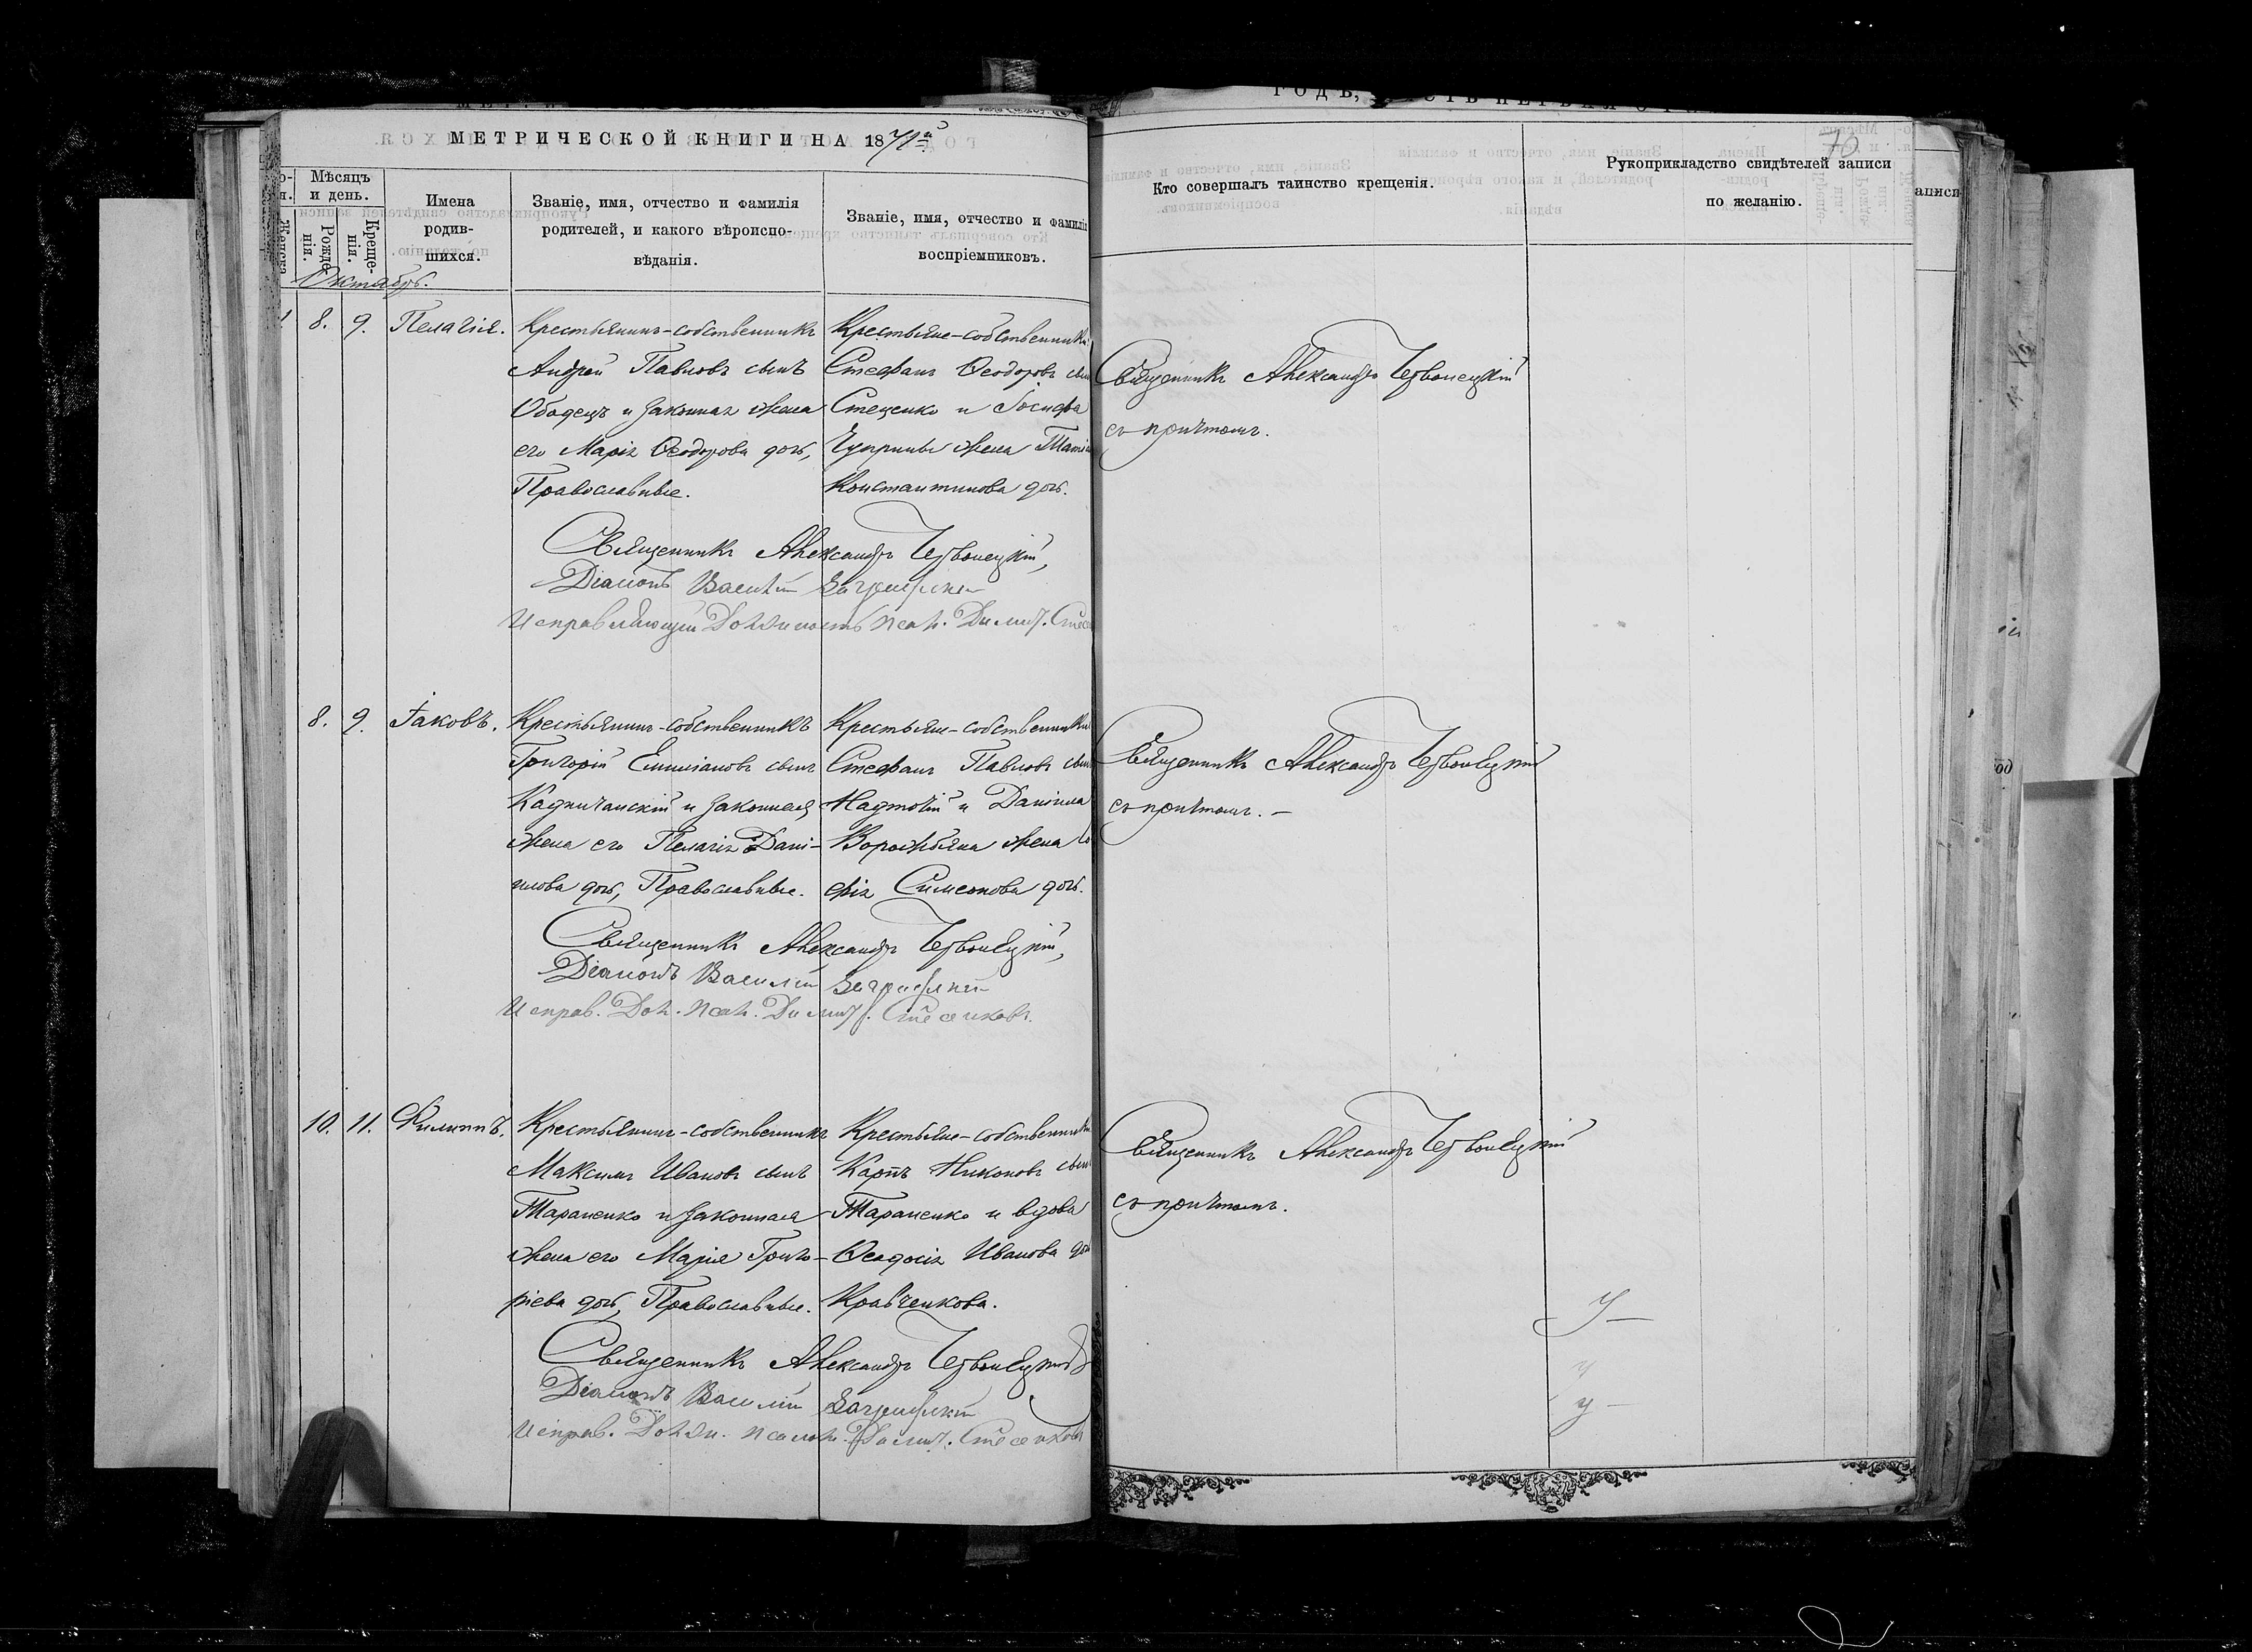 МЕТРИЧЕСКОЙ КНИГИ НА 1871й
Мѣсяцъ
и день.
Рожде-
нія.
Креще-
нія.
Имена
родив-
шихся.
Званіе, имя, отчество и фамилія
родителей, и какого вѣроиспо-
вѣданія.
Званіе, имя, отчество и фамилія
воспріемниковъ.
Кто совершалъ таинство крещенія.
Рукоприкладство свидѣтелей записи
по желанію.
70
аписи
Октябрь.
8. 9. Пелагія.
Крестьянинъ-собственникъ
Андрей Павловъ сынъ
и законная жена
его Марія Ѳеодорова дочь,
Православные.
Крестьяне-собственники
Стефанъ Ѳеодоровъ сынъ
Стеценко и Іосифа
Чуприны жена
Константинова дочь.
Священникъ Александръ Червонецкій
съ причтомъ.
Священникъ Александръ Червонецкій,
Діаконъ Василій
Исправляющій Должность Псал. Димит.
8. 9. Іаковъ.
Крестьянинъ-собственникъ
Григорій Емиліановъ сынъ
и законная
жена его Пелагія Дані-
илова дочь, Православные.
Крестьяне-собственники
Стефанъ Павловъ сынъ
и Даніила
жена Со
фія Симеонова дочь.
Священникъ Александръ Червонецкій
съ причтомъ. –
Священникъ Александръ Червонецкій,
Діаконъ Василій
Исправ. Дол. Псал. Димит.
10. 11. Филиппъ.
Крестьянинъ-собственникъ
Максимъ Ивановъ сынъ
Тараненко и законная
жена его Марія Григо-
ріева дочь, Православные.
Крестьяне-собственники
Карпъ Никоновъ сынъ
Тараненко и вдова
Ѳеодосія Иванова дочь
Кравченкова.
Священникъ Александръ Червонецкій
съ причтомъ.
Священникъ Александръ Червонецкій
Діаконъ Василій
Исправ. Должн. Псалом. Димит.